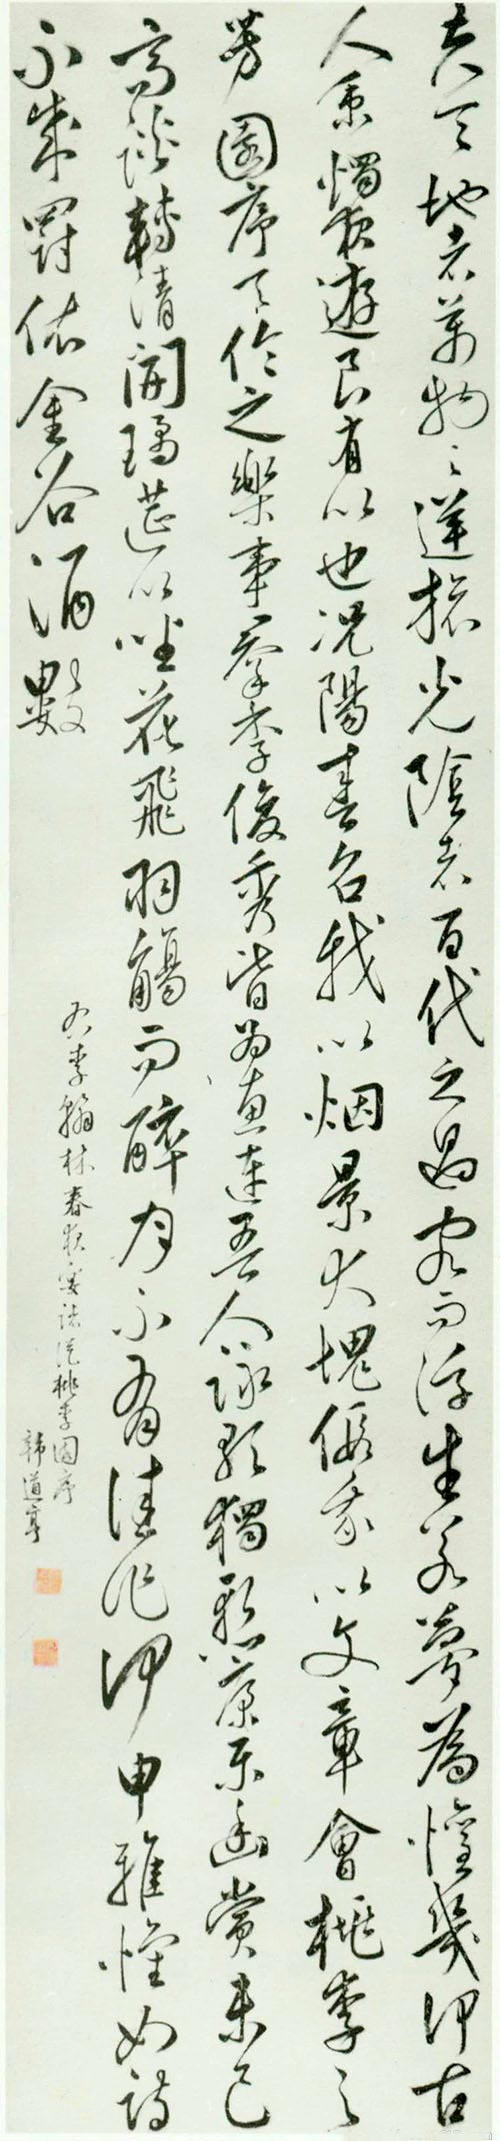 夫天地者萬物之逆旅光陰者百代之過客而浮生若夢為懽幾何古
人秉燭夜遊良有以也况陽春召我以烟景大塊假我以文章會桃李之
芳園序天倫之樂事羣季俊秀皆為惠連吾人詠歌獨慙康樂幽賞未已
高談轉清開瓊筵以坐花飛羽觴而醉月不有佳作何申雅懷如詩
不成罰依金谷酒數
右李翰林春夜宴諸從桃李園序
韓道亨